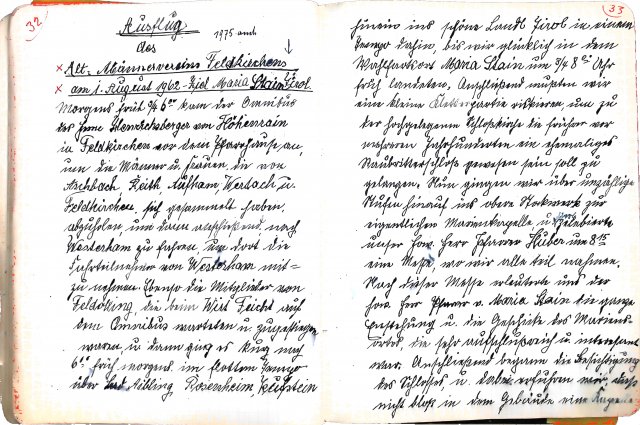 32
Ausflug
des 1975 auch
× Alt. Männervereins Feldkirchens
× am 1. August 1962 Ziel Maria Stain Tirol.
Morgens früh ¾ 6 Uhr kam der Omnibus
der Firma von Höhenrain
in Feldkirchen vor dem Pfarrhause an,
um die Männer u. Frauen die von
Aschbach, Reith, Lufham, Wertach u.
Feldkirchen sich gesammelt haben
abzuholen um dann anschließend nach
Westerham zu fahren, um dort die
Fahrteilnehmer von Westerham mit-
zu nehmen. Ebenso die Mitglieder von
Feldolling, die beim Wirt Feicht auf
dem Omnibus warteten u. zugestiegen
waren u. dann ging es kurz nach
6 Uhr früh morgens im flottem Tempo
über Bad Aibling, Rosenheim Kufstein
33
hinein ins schöne Landl Tirol in einem
Tempo dahin, bis wir glücklich in dem
Wallfahrtsort Maria Stain um ¾ 8 Uhr
früh landeten. Anschließend mußten wir
eine kleine Kletterpartie riskieren, um zu
der hochgelegenen Schloßkirche die früher vor
mehreren Jahrhunderten ein ehemaliges
Raubritterschloß gewesen sein soll zu
gelangen. Nun gingen wir über unzählige
Stufen hinauf ins obere Stokwerk zur
eigentlichen Marienkapelle u. zelebrierte
unser Hw. Herr Pfarrer Huber um 8 Uhr
eine Messe, wo wir alle teil nahmen.
Nach dieser Messe erleuterte uns der
Hw. Herr Pfarrer v. Maria Stain die ganze
Entstehung u. die Geschichte des Marien-
ortes die sehr aufschlußreich u. interessant
war. Anschließend begann die Besichtigung
des Schlosses, u. dabei erfuhren wir, daß
nicht bloß in dem Gebäude eine Kapelle